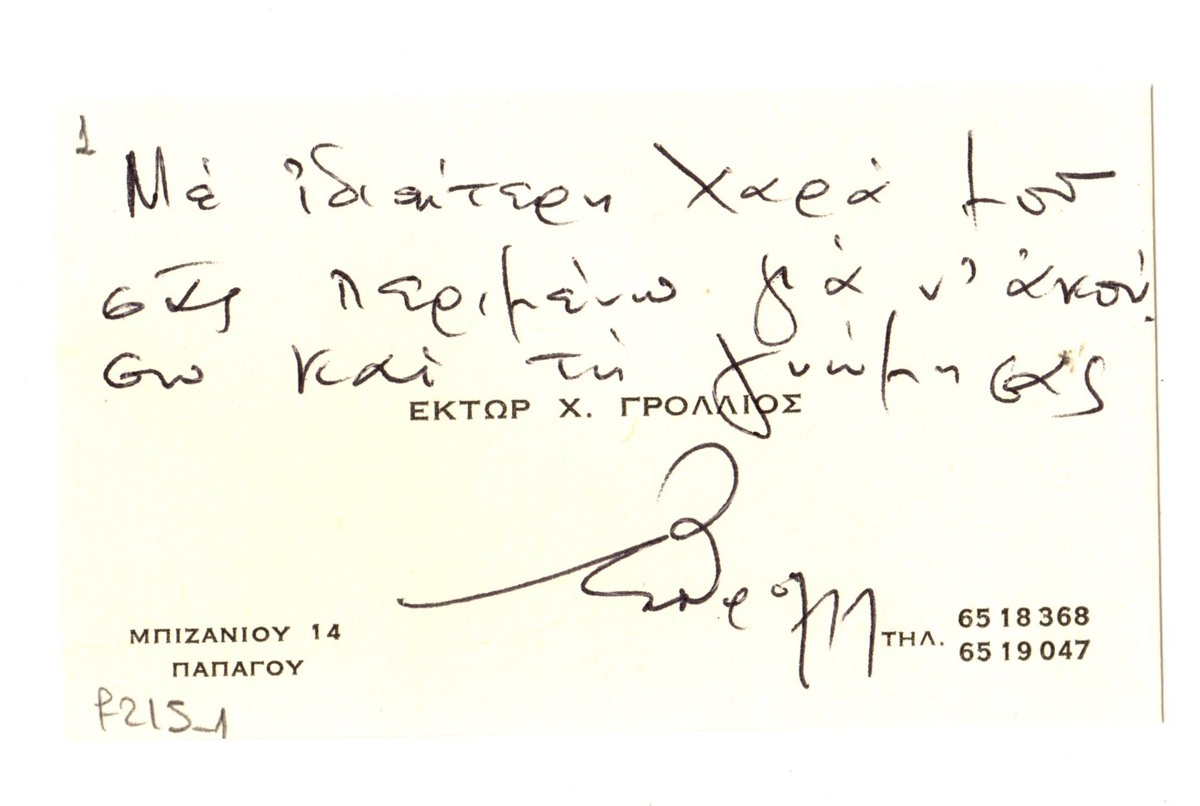 1
Μὲ ἰδιαίτερη χαρά μου
σᾶς περιμένω γιὰ ν' ἀκού
σω καὶ τὴ γνώμη σας
ΕΚΤΩΡ Χ. ΓΡΟΛΛΙΟΣ
ΜΠΙΖΑΝΙΟΥ 14
ΠΑΠΑΓΟΥ
ΤΗΛ. 65 18 368
65 19 047
F215_1